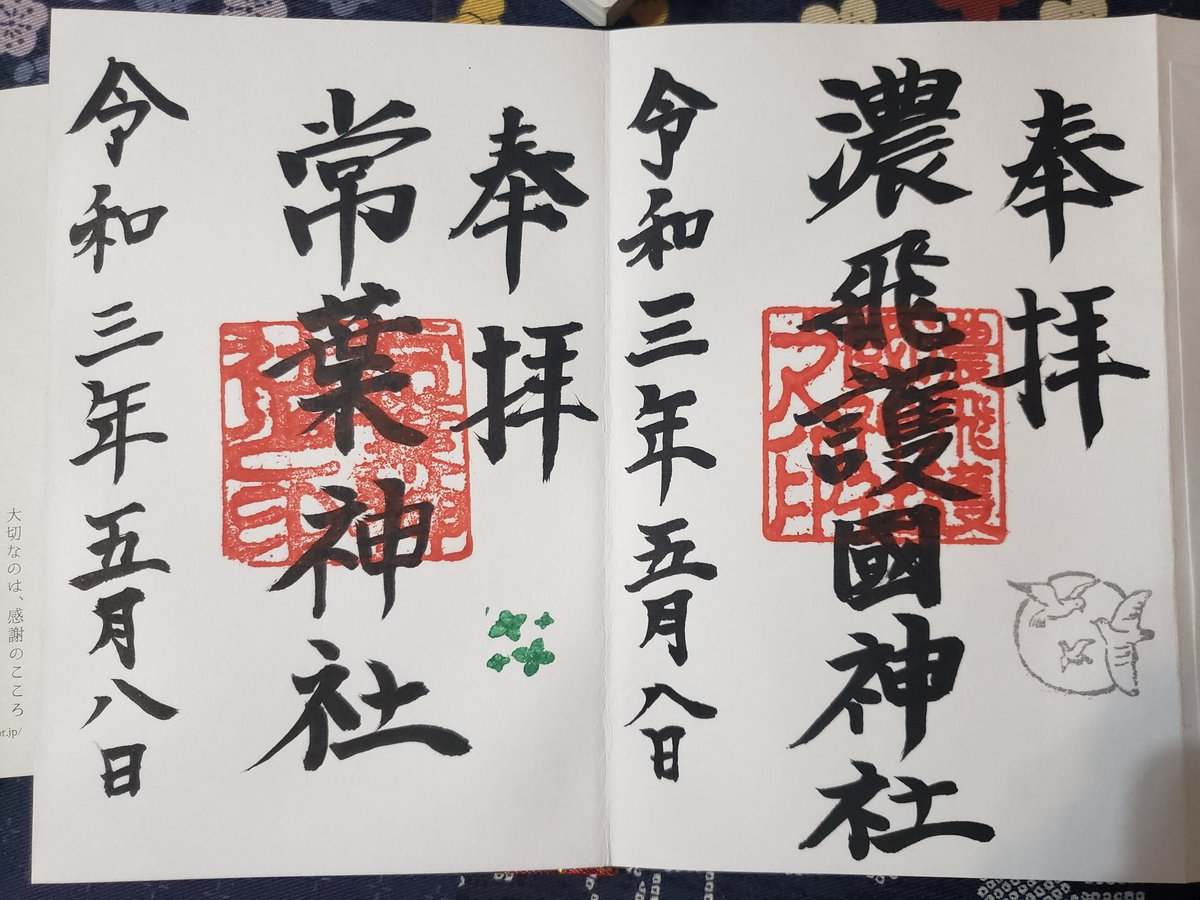 奉拝
濃飛護國神社
令和三年五月八日
奉拝
常葉神社
令和三年五月八日
大切なのは、感謝のこころ
or.jp/